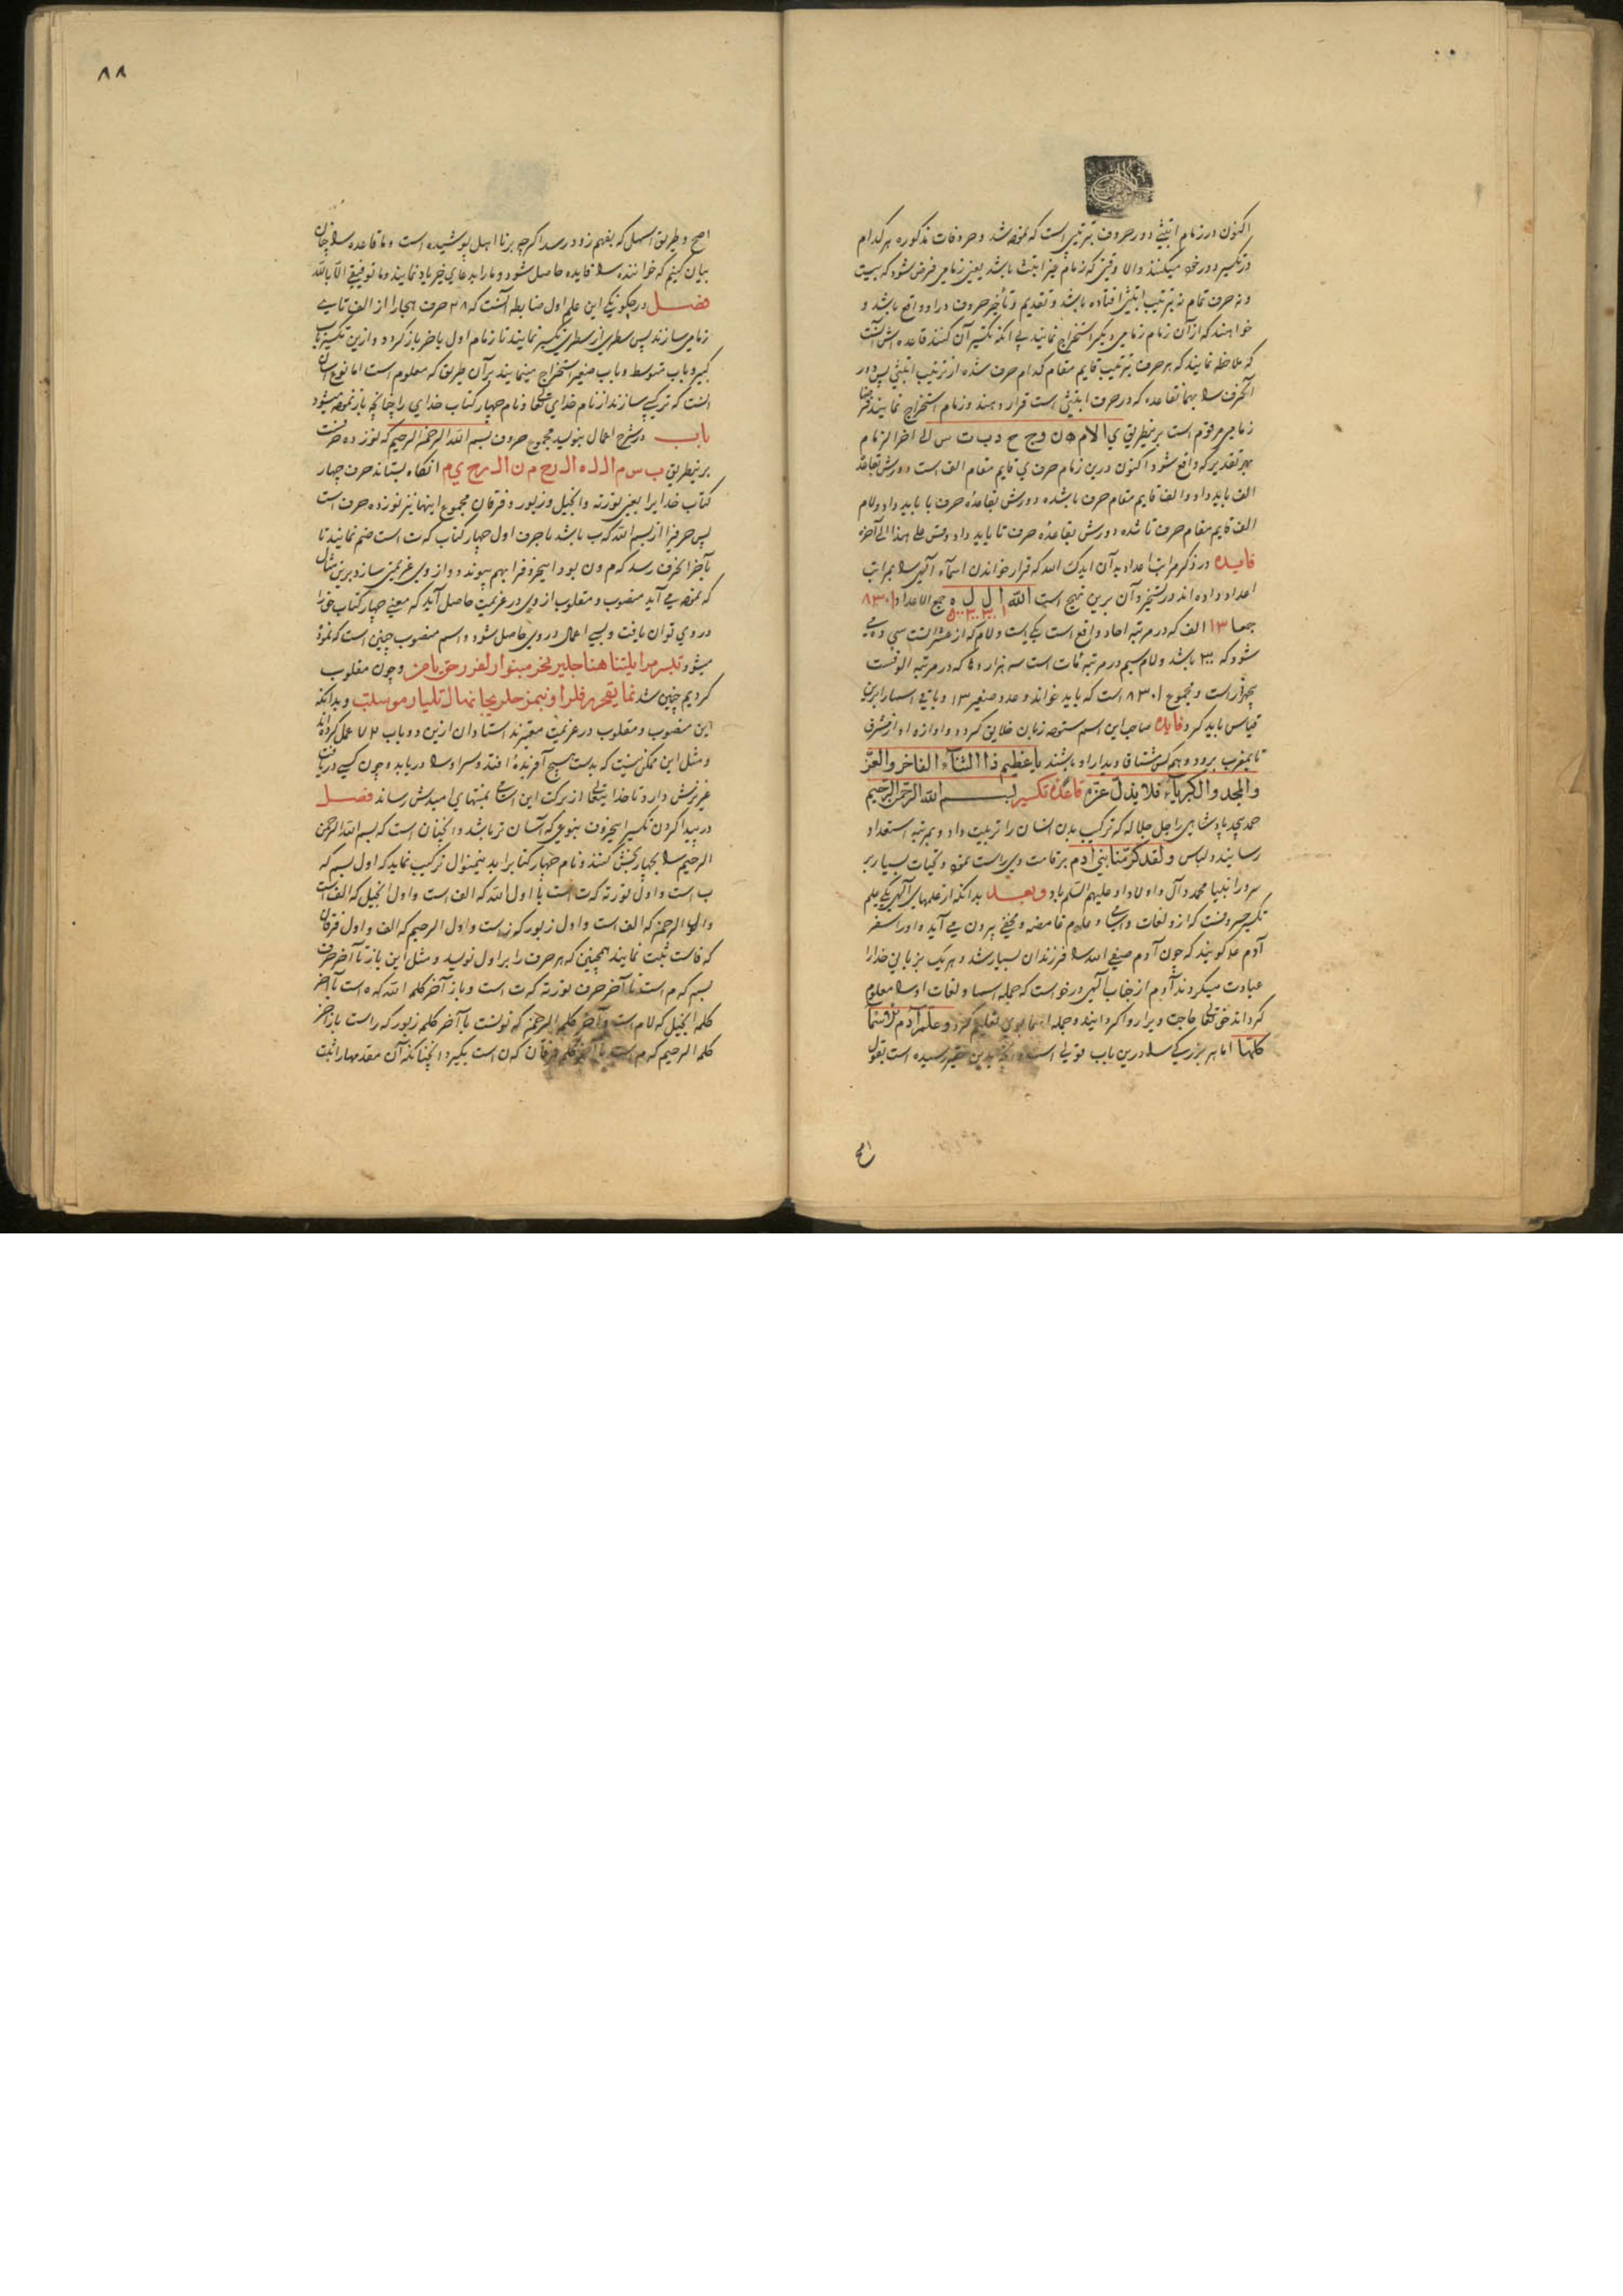 اکنون در زمام ابتثی دور حروف بترتیبی است که نموده شد و حروفات مذکوره هر کدام
در تکسیر دور خود میکنند والا وقتی که زمام غیر ابتث باشد یعنی زمامی فرض شود که بیست
ونه حرف تمام نه بترتیب ابتثی افتاده باشد و تقدیم و تأخیر حروف در او واقع باشد و
خواهند که از آن زمام زمامی دیگر استخراج نمایند بی آنکه تکسیر آن کنند قاعده اش آنست
که ملاحظه نمایند که هر حرف بترتیب قایم مقام کدام حرف شده از ترتیب ابتثی پس دور
آنحرف را بهمانقاعده که در حرف ابتثی است قرار دهند و زمام استخراج نمایند فرضا
زمامی مرقوم است برینطریق ی ا لا م ه ن و ج ح د ب ت س الی اخر الزمام
بهر تقدیر که واقع شود اکنون درین زمام حرف ی قایم مقام الف است دورش بقاعده
الف باید داد و الف قایم مقام حرف با شده دورش بقاعده حرف با باید داد و لام
الف قایم مقام حرف تا شده دورش بقاعده حرف تا باید داد وقس علی هذا الی آخره
فایده در ذکر مراتب اعداد بدآن ایدک الله که قرار خواندن اسمآء الهی را بمراتب
اعداد داده اند و رتسخیر آن برین نهج است الله ا ل ل ه جمع الاعداد ٨٣٠١
جمعا ١٣ الف که در مرتبه احاد واقع است یکی است و لام که از عشرات است سی
شود که ٣٠٠ باشد و لام سیم در مرتبه مئات است سه هزار و ها که در مرتبه الوفست
پنجهزار است و مجموع ٨٣٠١ است که باید خواند و عدد صغیر ١٣ و باقی اسما را برین
قیاس باید کرد فایده صاحب این اسم ستوده زبان خلایق گردد و اوازه او از مشرق
تا بمغرب برود و همه کس مشتاق دیدار او باشند یا عظیم ذا الثنآء الفاخر والعز
والمجد والکبریآء فلا یذل عزه قاعده تکسیر بسم الله الرحمن الرحیم
حمد بیحد پادشاهی را جل جلاله که ترکیب بدن انسان را تربیت داد و بمرتبه استعداد
رسانیده و لباس ولقد کرمنا بنی ادم بر قامت وی راست نموده و تحیات بسیار بر
سرور انبیا محمد و آل و اولاد او علیهم السلم باد وبعد بدانکه از علمهای الهی یکی علم
تکسیر حروفست که ازو لغات و اسامی و علوم غامضه و مخفی بیرون می آید و او را سفر
آدم عم گویند که چون آدم صفی الله را فرزندان بسیار شد و هر یک بزبانی خدا را
عبادت میکردند آدم از جناب الهی درخواست که جمله اسما و لغات او را معلوم
گرداند حق تعالی حاجت ویرا روا گردانید و جمله اسما بوی تعلیم کرد وعلم آدم الاسمآ
کلها اما هر بزرگی را درین باب قولی است و آنچه بدین حقیر رسیده است بقول
اصح
٨٨
اصح و طریق اسهل که بفهم زود رسد اگرچه بر نااهل پوشیده است و ما قاعده را چنان
بیان کنیم که خواننده را فایده حاصل شود و ما را بدعای خیر یاد نمایند وما توفیقی الا بالله
فصل در چگونگی این علم اول ضابطه آنست که ٢٨ حرف هجا را از الف تا یی
زمامی سازند پس سطری از سطری تکسیر نمایند تا زمام اول باخر باز گردد و ازین تکسیر باب
کبیر و باب متوسط و باب صغیر استخراج مینمایند بر آن طریق که معلوم است اما نوع اسان
آنست که ترکیبی سازند از نام خدای تعالی و نام چهار کتاب خدای را چنانچه باز نموده میشود
باب در شرح اعمال بنوسید مجموع حروف بسم الله الرحمن الرحیم که نوزده حرفست
برینطریق ب س م ا ل ل ه ا ل ر ح م ن ا ل ر ح ی م انگاه بستاند حرف چهار
کتاب خدایرا یعنی توریة و انجیل و زبور و فرقان مجموع اینها نیز نوزده حرف است
پس حرفیرا از بسم الله که ب باشد با حرف اول چهار کتاب که ت است ضم نمایند تا
بآخر الحرف رسد که م و ن بود اینحروفرا بهم پیوندد و از وی عزیمتی سازد برین مثال
که نموده می آید منصوب و مقلوب از وی در عزیمت حاصل آید که معنی چهار کتاب خدا
در وی توان یافت و بسی اعمال در وی حاصل شود و اسم منصوب چنین است که نموده
میشود و چون مقلوب
کردیم چنین شد و بدانکه
این منصوب و مقلوب در عزیمت معتبرند استادان ازین دو باب ٧٢ عمل کرده اند
و مثل این ممکن نیست که بدست هیچ آفریده افتد و سر او را دریابد و چون کسی دریافت
عزیزش دارد تا خدایتعالی از برکت این اسامی بمنتهای امیدش رساند فصل
در پیدا کردن تکسیر اینحروف بنوعی که آسان تر باشد و انچنان است که بسم الله الرحمن
الرحیم را بچهار بخش کنند و نام چهار کتابرا بدینمنوال ترکیب نماید که اول بسم که
ب است و اول توریة که ت است با اول الله که الف است و اول انجیل که الف است
و اول الرحمن که الف است و اول زبور که ز است و اول الرحیم که الف و اول فرقان
که فاست ثبت نمایند همچنین که هر حرف را برابر اول نوسید و مثل این باز تا آخر حرف
بسم که م است تا آخر حرف توریة که ت است و باز آخر کلمه الله که ه است با آخر
کلمه انجیل که لام است و آخر کلمه الرحمن که نونست با آخر کلمه زبور که راست باز آخر
کلمه الرحیم که م است با آخر کلمه فرقان که ن است بگیرد انچنانکه آن مقدمها را ثبت